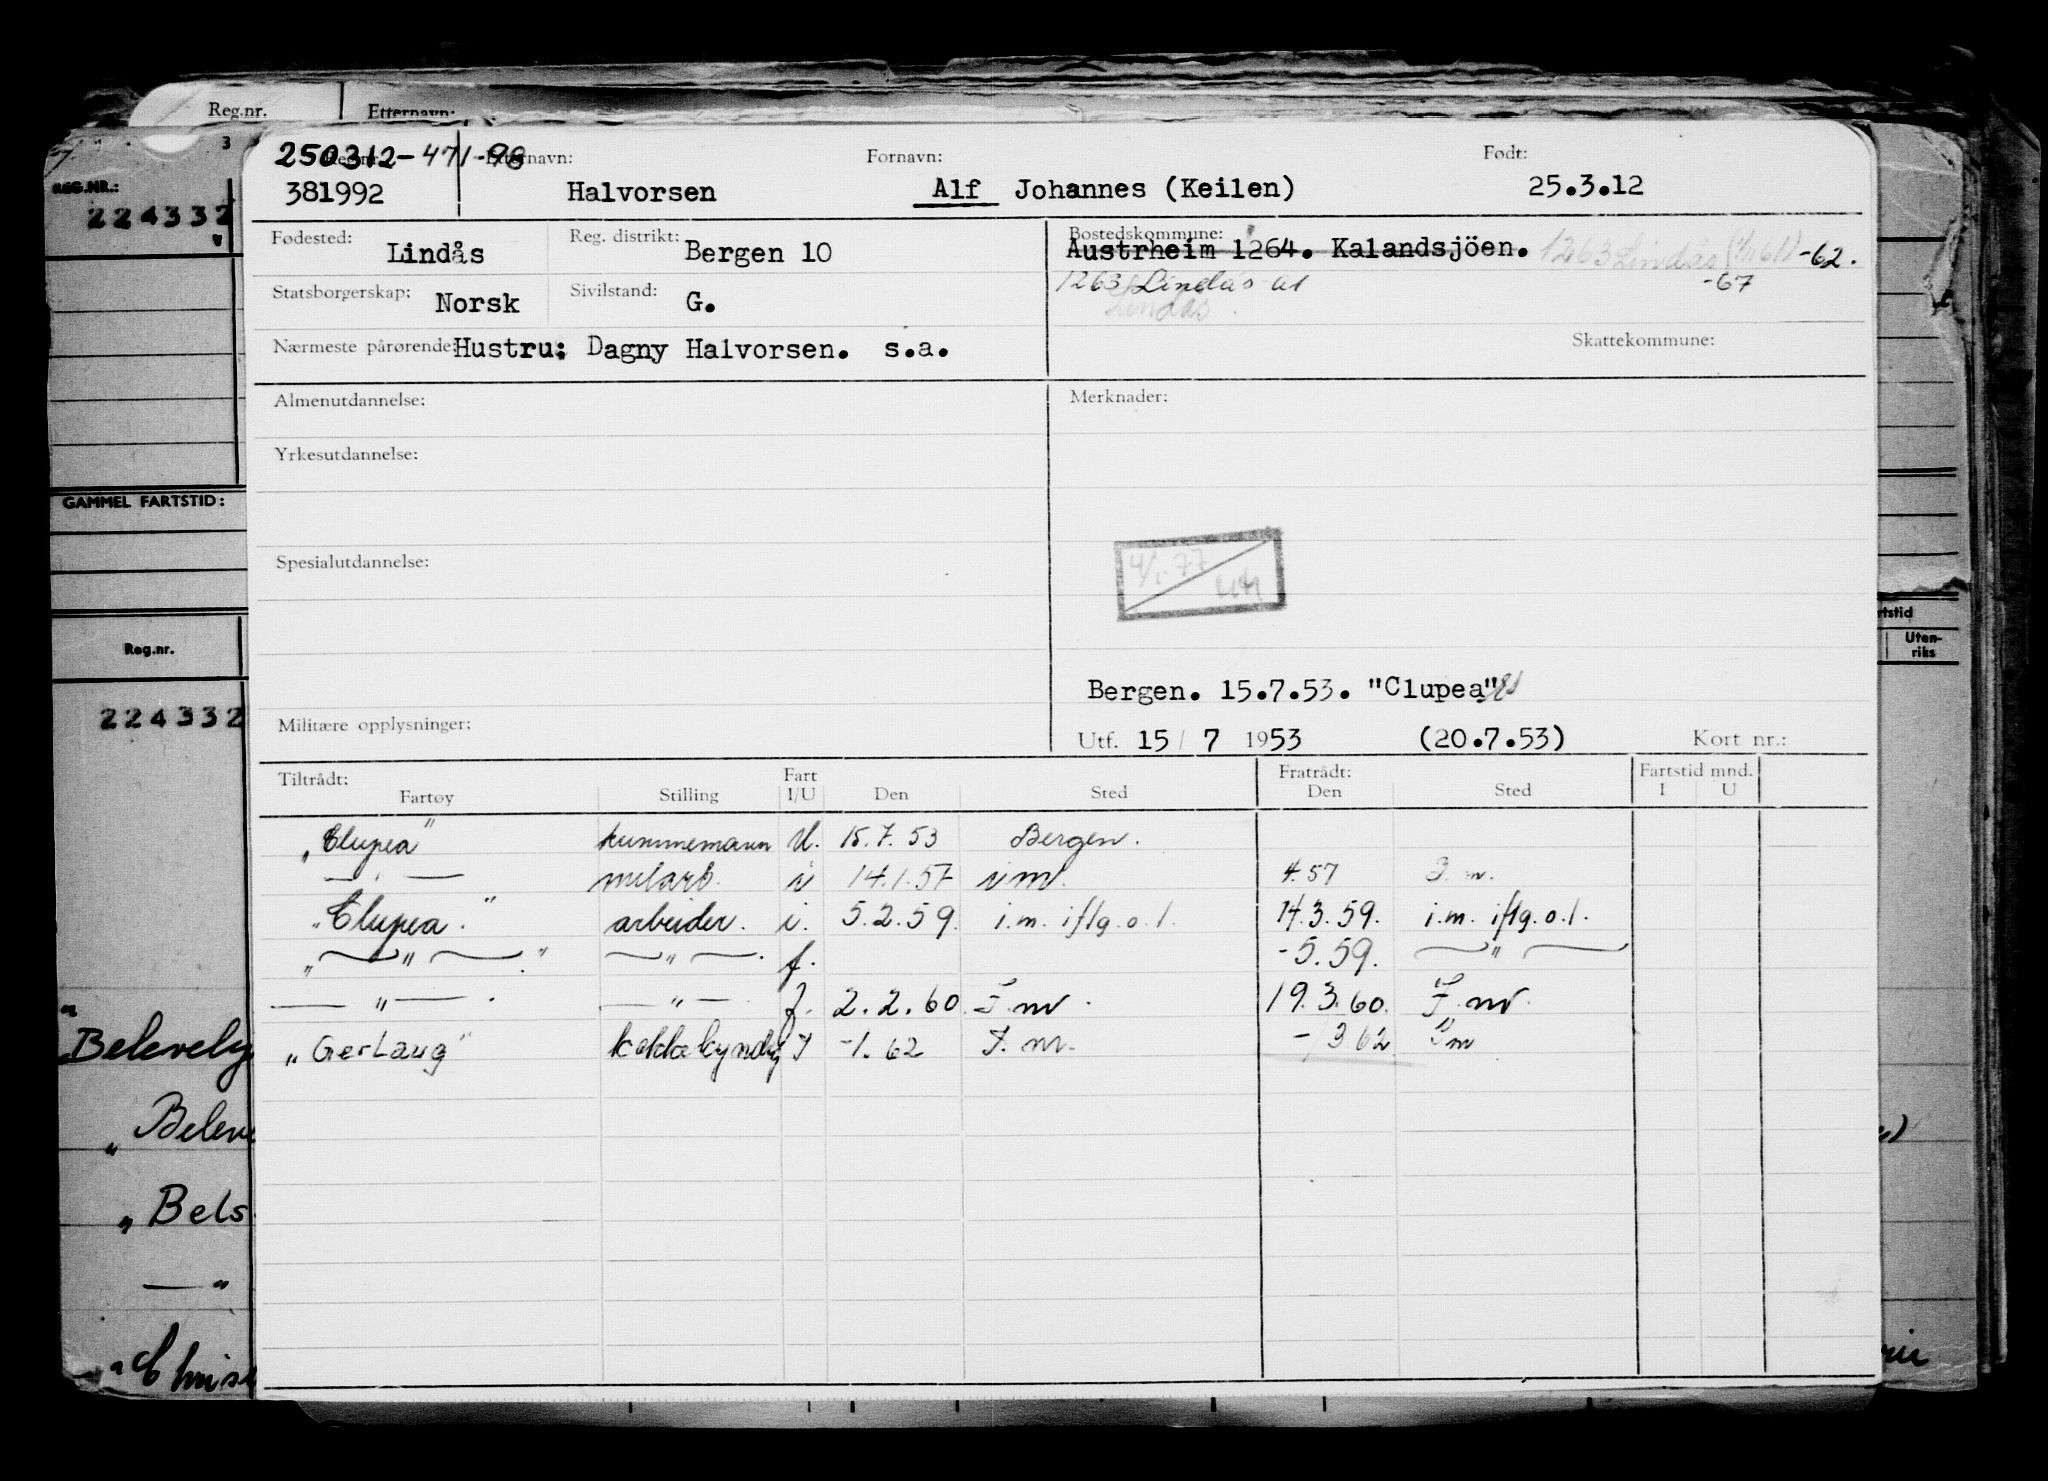 Reg.nr. Etternavn:
3
REG.NR.:
224332
GAMMEL FARTSTID:
Reg.nr.
224332
Belevely
Beleve
"Bels
— "
"Chris
250312-471-98
Etternavn: Fornavn: Født:
381992 Halvorsen Alf Johannes (Keilen) 25.3.12
Fødested: Lindås Reg. distrikt: Bergen 10 Bostedskommune:
Austrheim 1264. Kalandsjöen. 1263 Lindås (1/1 61) -62.
1263 Lindås al -67
Lindås.
Statsborgerskap: Norsk Sivilstand: G.
Nærmeste pårørende: Hustru: Dagny Halvorsen. s.a. Skattekommune:
Almenutdannelse: Merknader:
Yrkesutdannelse:
Spesialutdannelse:
4/1.77
Bergen. 15.7.53. "Clupea"
Militære opplysninger:
Utf. 15/ 7 1953 (20.7.53) Kort nr.:
Tiltrådt: Fart Fratrådt: Fartstid mnd.
Fartøy Stilling I/U Den Sted Den Sted I U
"Clupea" kummemann U. 15.7.53 Bergen.
— " — melarb. i 14.1.57 i m. 4.57 I. m.
"Clupea." arbeider. i. 5.2.59. i.m. iflg.o.l. 14.3.59. i.m. iflg.o.l.
" — " — " — " — f. -5.59. — " —
— " — . — " — f. 2.2.60 I. m. 19.3.60. I. m.
"Gerlaug" kokkekyndig I -1.62 I. m. -/3 62 I m
rtstid
Uten-
riks